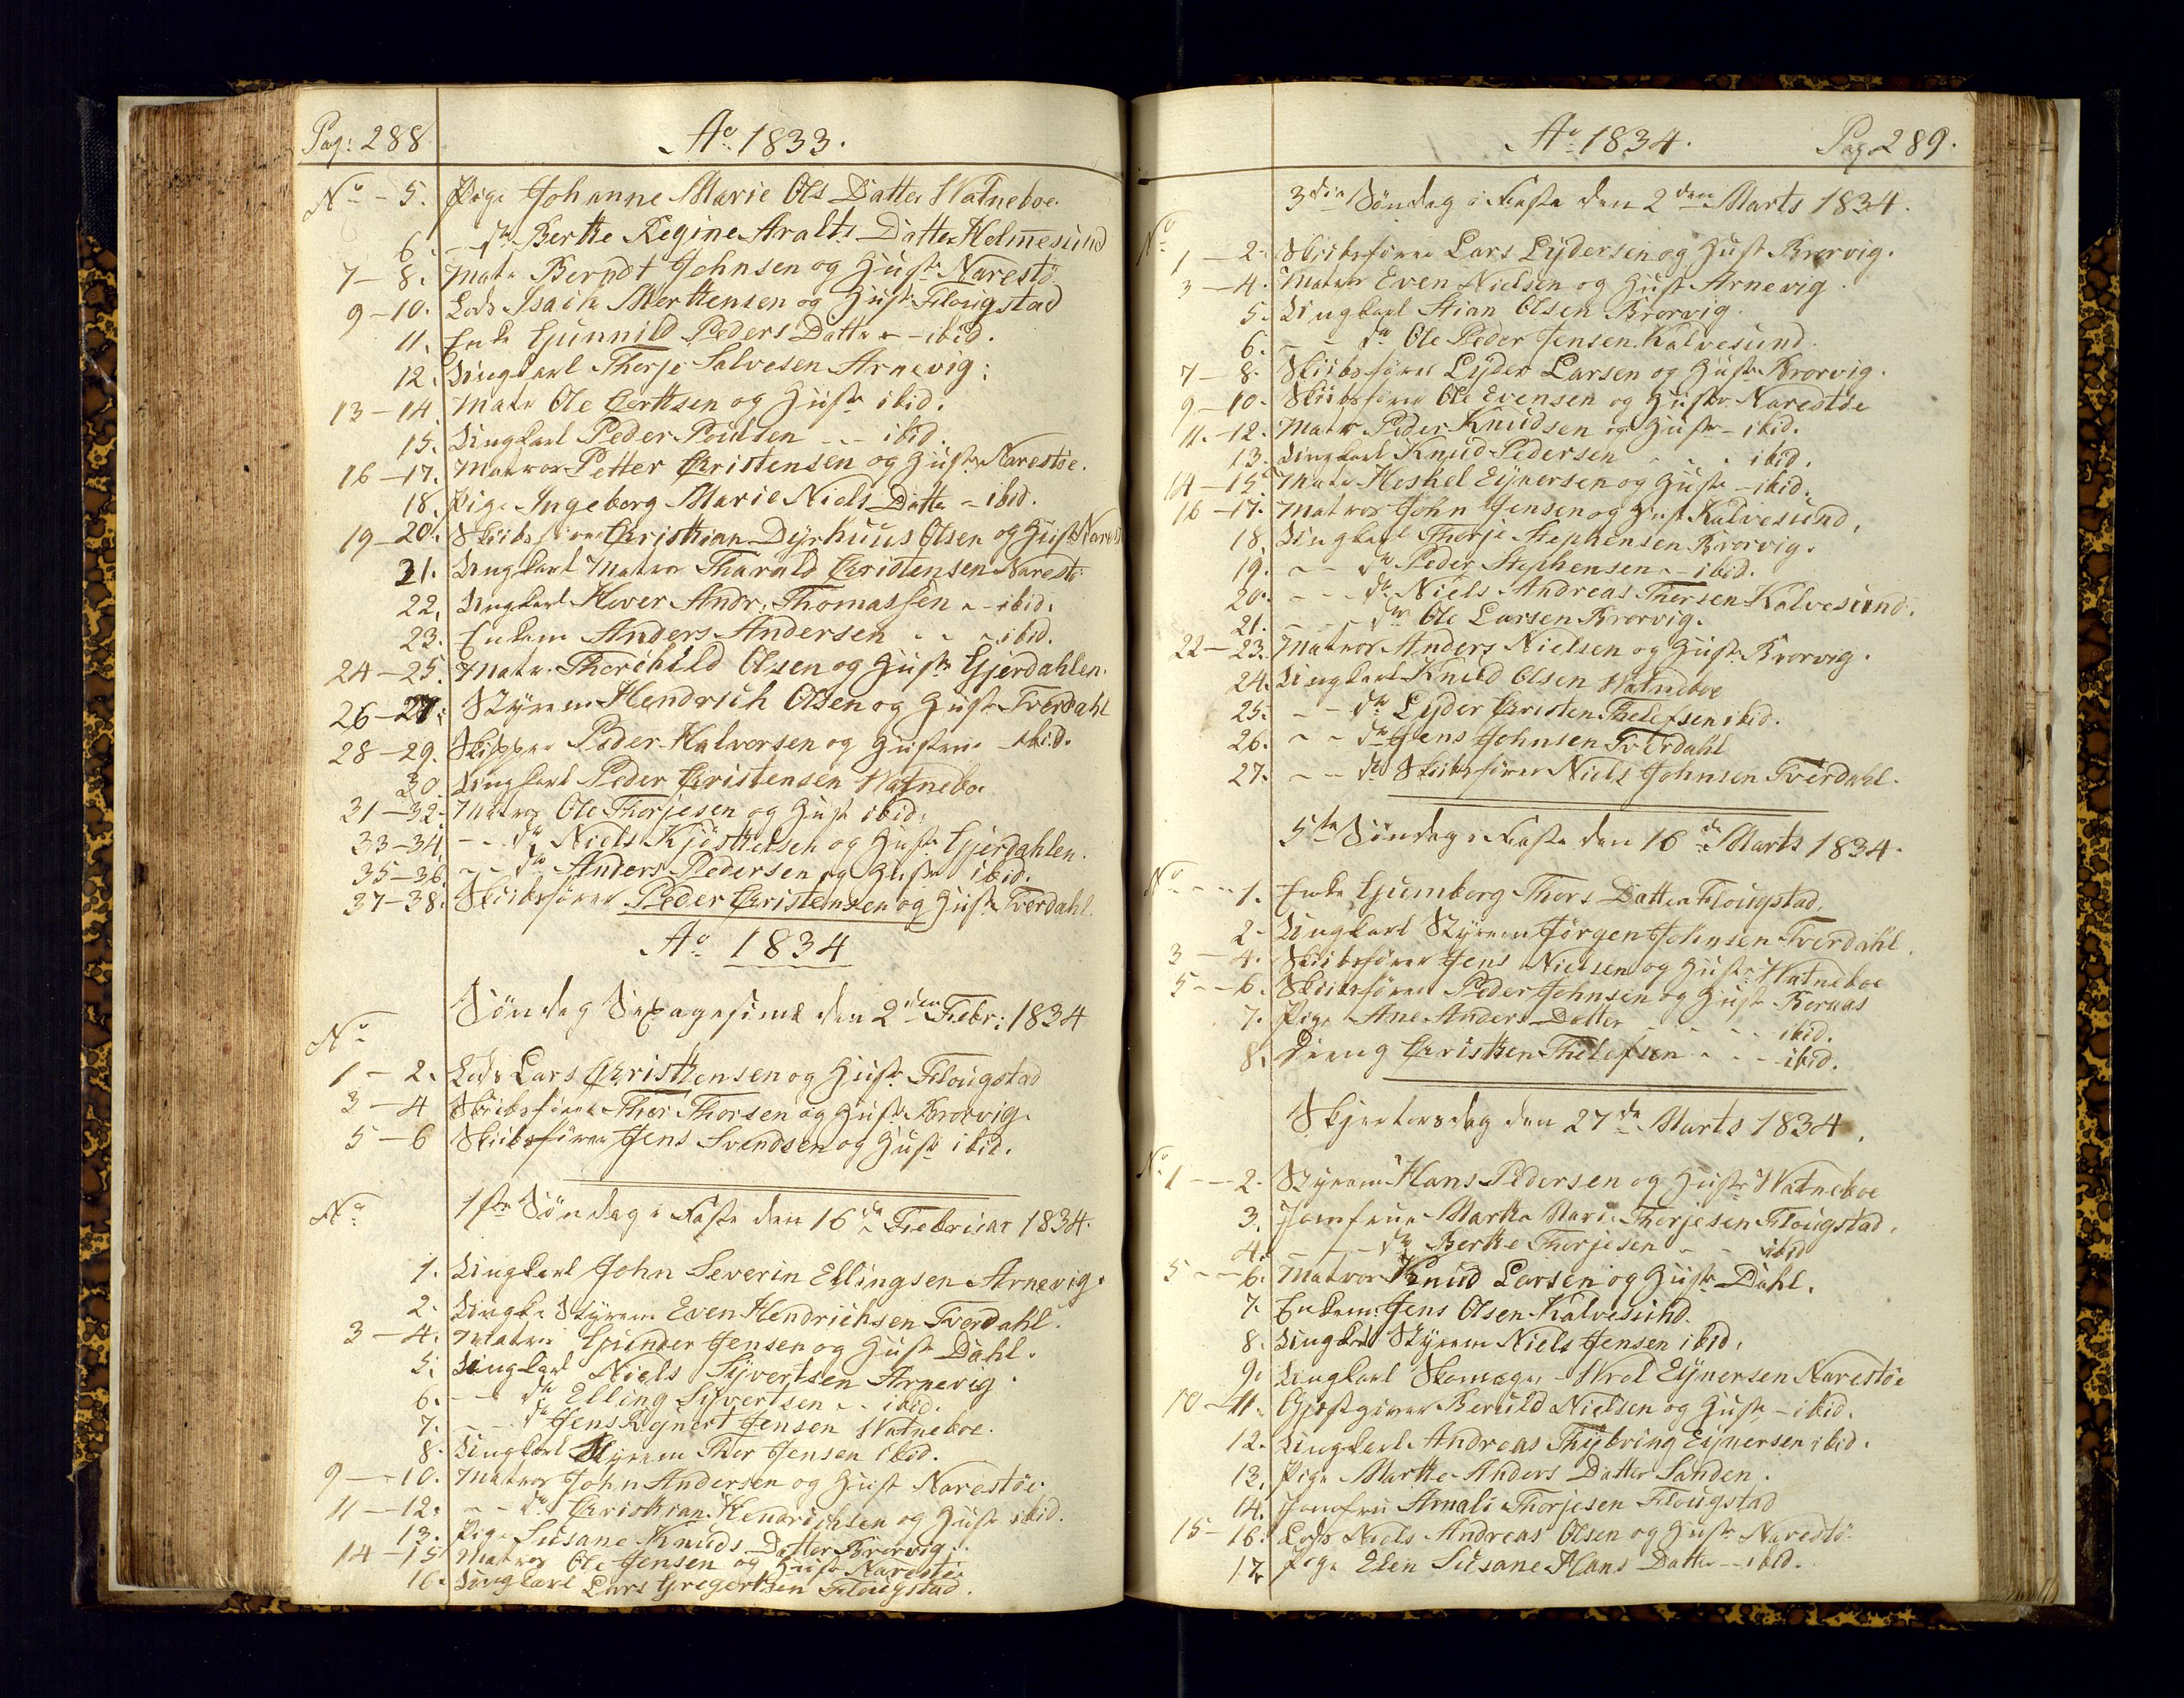 Pag: 288
Ao 1833.
No - 5. Pige Johanne Marie Ols Datter Watneboe
6. - do Berthe Regine Aralts Datter Holmesund
7 - 8. Matr Berndt Johnsen og Hustr Narestö
9 - 10. Lods Isach Merttensen og Hustr Flougstad
11. Enke Gunnild Peders Datter - ibid.
12. Ungkarl Thorje Salvesen Arnevig.
13 - 14 Matr Ole Gerttsen og Hustr ibid.
15. Ungkarl Peder Poulsen - - ibid.
16 - 17. Matros Petter Christensen og Hustr Narestöe.
18. Pige Ingeborg Marie Niels Datter - ibid.
19 - 20. Skibsförer Christian Dyrhuus Olsen og Hustr
21. Ungkarl Matros Tharald Christensen Narestö
22. Ungkarl Hover Andr: Thomassen - ibid.
23. Enkem Anders Andersen - - ibid.
24 - 25. Matr. Thorchild Olsen og Hustr Gjerdahlen.
26 - 27. Styrem Hendrich Olsen og Hustr Tverdahl
28 - 29. Skipper Peder Halvorsen og Hustrue ibid.
30. Ungkarl Peder Christensen Watnebo
31 - 32. Matros Ole Thorjesen og Hustr ibid.
33 - 34. - - do Niels Kjösttelsen og Hustr Gjerdahlen.
35 - 36. - - do Anders Pedersen og Hustr ibid.
37 - 38. Skibsförer Peder Christensen og Hustr Tverdahl.
Ao 1834
Söndag Sexagesimæ den 2den Febr: 1834
No
1 - 2. Lods Lars Christensen og Hustr Flougstad
3 - 4 Skibsförer Thor Thorsen og Hustr Brorvig.
5 - 6 Skibsförer Jens Svendsen og Hustr ibid.
No 1ste Söndag i Faste den 16de Februar 1834.
1. Ungkarl John Severin Ellingsen Arnevig.
2. Ungka Styrem Even Hendrichsen Tverdahl.
3 - 4. Matros Gunder Jensen og Hustr Dahl.
5. Ungkarl Niels Syvertsen Arnevig.
6. - - do Elling Syvertsen - - ibid.
7. - - do Jens Rejnert Jensen Watneboe.
8. Ungkarl Styrem Thor Jensen ibid.
9 - 10. Matros John Andersen og Hustr Narestöe
11 - 12. - - do Christian Hendrichsen og Hustr ibid.
13. Pige Susane Knuds Datter Brorvig.
14 - 15 Matros Ole Jensen og Hustr Narestöe
16. Ungkarl Lars Gregertsen Flougstad.
Ao 1834. Pag 289.
3die Söndag i Faste den 2den Marts 1834.
No
1 - 2. Skibsförer Lars Lydersen og Hustr Brorvig.
3 - 4. Matros Even Nielsen og Hustr Arnevig.
5. Ungkarl Stian Olsen Brorvig.
6. - - do Ole Peder Jensen Kalvesund.
7 - 8. Skibsförer Lyder Larsen og Hustr Brorvig.
9 - 10. Skibsförer Ole Evensen og Hustr Narestöe
11. - 12. Matr Peder Knudsen og Hustr - ibid.
13. Ungkarl Knud Pedersen - - ibid.
14 - 15. Matr Heskel Eynersen og Hustr - ibid.
16 - 17. Matros John Jensen og Hustr Kalvesund.
18. Ungkarl Thorje Stephensen Brorvig.
19. - - do Peder Stephensen - - ibid.
20. - - - do Niels Andreas Thorsen Kalvesund.
21. - - - do Ole Larsen Brorvig.
22 - 23. Matros Anders Nielsen og Hustr Brorvig.
24. Ungkarl Knud Olsen Watneboe
25. - - do Lyder Christen Thelefsen ibid.
26. - - do Jens Johnsen Tverdahl
27. - - do Skibsförer Niels Johnsen Tverdahl.
5te Söndag i Faste den 16de Marts 1834.
No - - - 1. Enke Gumborg Thors Datter Flougstad.
2 - Ungkarl Styrem Jörgen Johnsen Tverdahl.
3 - 4. Skibsförer Jens Nielsen og Hustr Watneboe
5 - - 6. Skibsförer Peder Johnsen og Hustr Bornas
7. Pige Ane Anders Datter - - - - ibid.
8. Dreng Christen Thelefsen - - - ibid.
Skjertorsdag den 27de Marts 1834.
No 1 - - 2. Styrem Hans Pedersen og Hustr Watneboe
3. Jomfrue Martha Mari Thorjesen Flougstad.
4. - - - do Berthe Thorjesen - - ibid
5 - - 6. Matros Knud Larsen og Hustr Dahl.
7. Enkem: Jens Olsen Kalvesund.
8. Ungkarl Styrem Niels Jensen ibid.
9. Ungkarl Skomager Wrol Eynersen Narestöe
10 - 11. Gjestgiver Beruld Nielsen og Hustr - ibid.
12. Ungkarl Andreas Thybring Eynersen ibid.
13. Pige Marthe Anders Datter Sanden.
14. Jomfru Amali Thorjesen Flougstad
15 - 16. Lods Niels Andreas Olsen og Hustr Narestö
17. Pige Elen Susane Hans Datter - ibid.